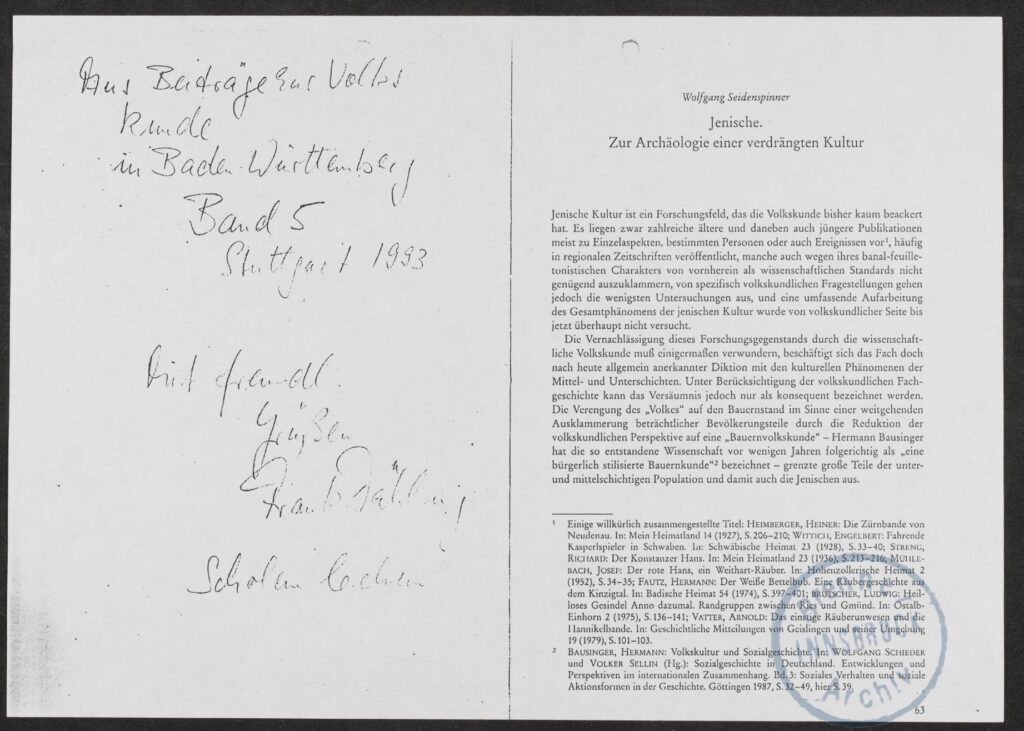 Aus Beiträge zur Volks
kunde
in Baden-Württemberg
Band 5
Stuttgart 1993
Mit freundl.
Grüßen
Frank
Wolfgang Seidenspinner
Jenische.
Zur Archäologie einer verdrängten Kultur
Jenische Kultur ist ein Forschungsfeld, das die Volkskunde bisher kaum beackert
hat. Es liegen zwar zahlreiche ältere und daneben auch jüngere Publikationen
meist zu Einzelaspekten, bestimmten Personen oder auch Ereignissen vor¹, häufig
in regionalen Zeitschriften veröffentlicht, manche auch wegen ihres banal-feuille-
tonistischen Charakters von vornherein als wissenschaftlichen Standards nicht
genügend auszuklammern, von spezifisch volkskundlichen Fragestellungen gehen
jedoch die wenigsten Untersuchungen aus, und eine umfassende Aufarbeitung
des Gesamtphänomens der jenischen Kultur wurde von volkskundlicher Seite bis
jetzt überhaupt nicht versucht.
Die Vernachlässigung dieses Forschungsgegenstands durch die wissenschaft-
liche Volkskunde muß einigermaßen verwundern, beschäftigt sich das Fach doch
nach heute allgemein anerkannter Diktion mit den kulturellen Phänomenen der
Mittel- und Unterschichten. Unter Berücksichtigung der volkskundlichen Fach-
geschichte kann das Versäumnis jedoch nur als konsequent bezeichnet werden.
Die Verengung des „Volkes“ auf den Bauernstand im Sinne einer weitgehenden
Ausklammerung beträchtlicher Bevölkerungsteile durch die Reduktion der
volkskundlichen Perspektive auf eine „Bauernvolkskunde“ – Hermann Bausinger
hat die so entstandene Wissenschaft vor wenigen Jahren folgerichtig als „eine
bürgerlich stilisierte Bauernkunde“² bezeichnet – grenzte große Teile der unter-
und mittelschichtigen Population und damit auch die Jenischen aus.
¹ Einige willkürlich zusammengestellte Titel: HEIMBERGER, HEINER: Die Zürnbande von
Neudenau. In: Mein Heimatland 14 (1927), S. 206–210; WITTICH, ENGELBERT: Fahrende
Kasperlspieler in Schwaben. In: Schwäbische Heimat 23 (1928), S. 33–40; STRENG,
RICHARD: Der Konstanzer Hans. In: Mein Heimatland 23 (1936), S. 213–216; MÜHLE-
BACH, JOSEF: Der rote Hans, ein Weithart-Räuber. In: Hohenzollerische Heimat 2
(1952), S. 34–35; FAUTZ, HERMANN: Der Weiße Bettelbub. Eine Räubergeschichte aus
dem Kinzigtal. In: Badische Heimat 54 (1974), S. 397–401; LUDWIG: Heil-
loses Gesindel Anno dazumal. Randgruppen zwischen Ries und Gmünd. In: Ostalb-
Einhorn 2 (1975), S. 136–141; VATTER, ARNOLD: Das einstige Räuberunwesen und die
Hannikelbande. In: Geschichtliche Mitteilungen von Geislingen und seiner Umgebung
19 (1979), S. 101–103.
² BAUSINGER, HERMANN: Volkskultur und Sozialgeschichte. In: WOLFGANG SCHIEDER
und VOLKER SELLIN (Hg.): Sozialgeschichte in Deutschland. Entwicklungen und
Perspektiven im internationalen Zusammenhang. Bd. 3: Soziales Verhalten und soziale
Aktionsformen in der Geschichte. Göttingen 1987, S. 32–49, hier S. 39.
INNSBRUCK
Archiv
63